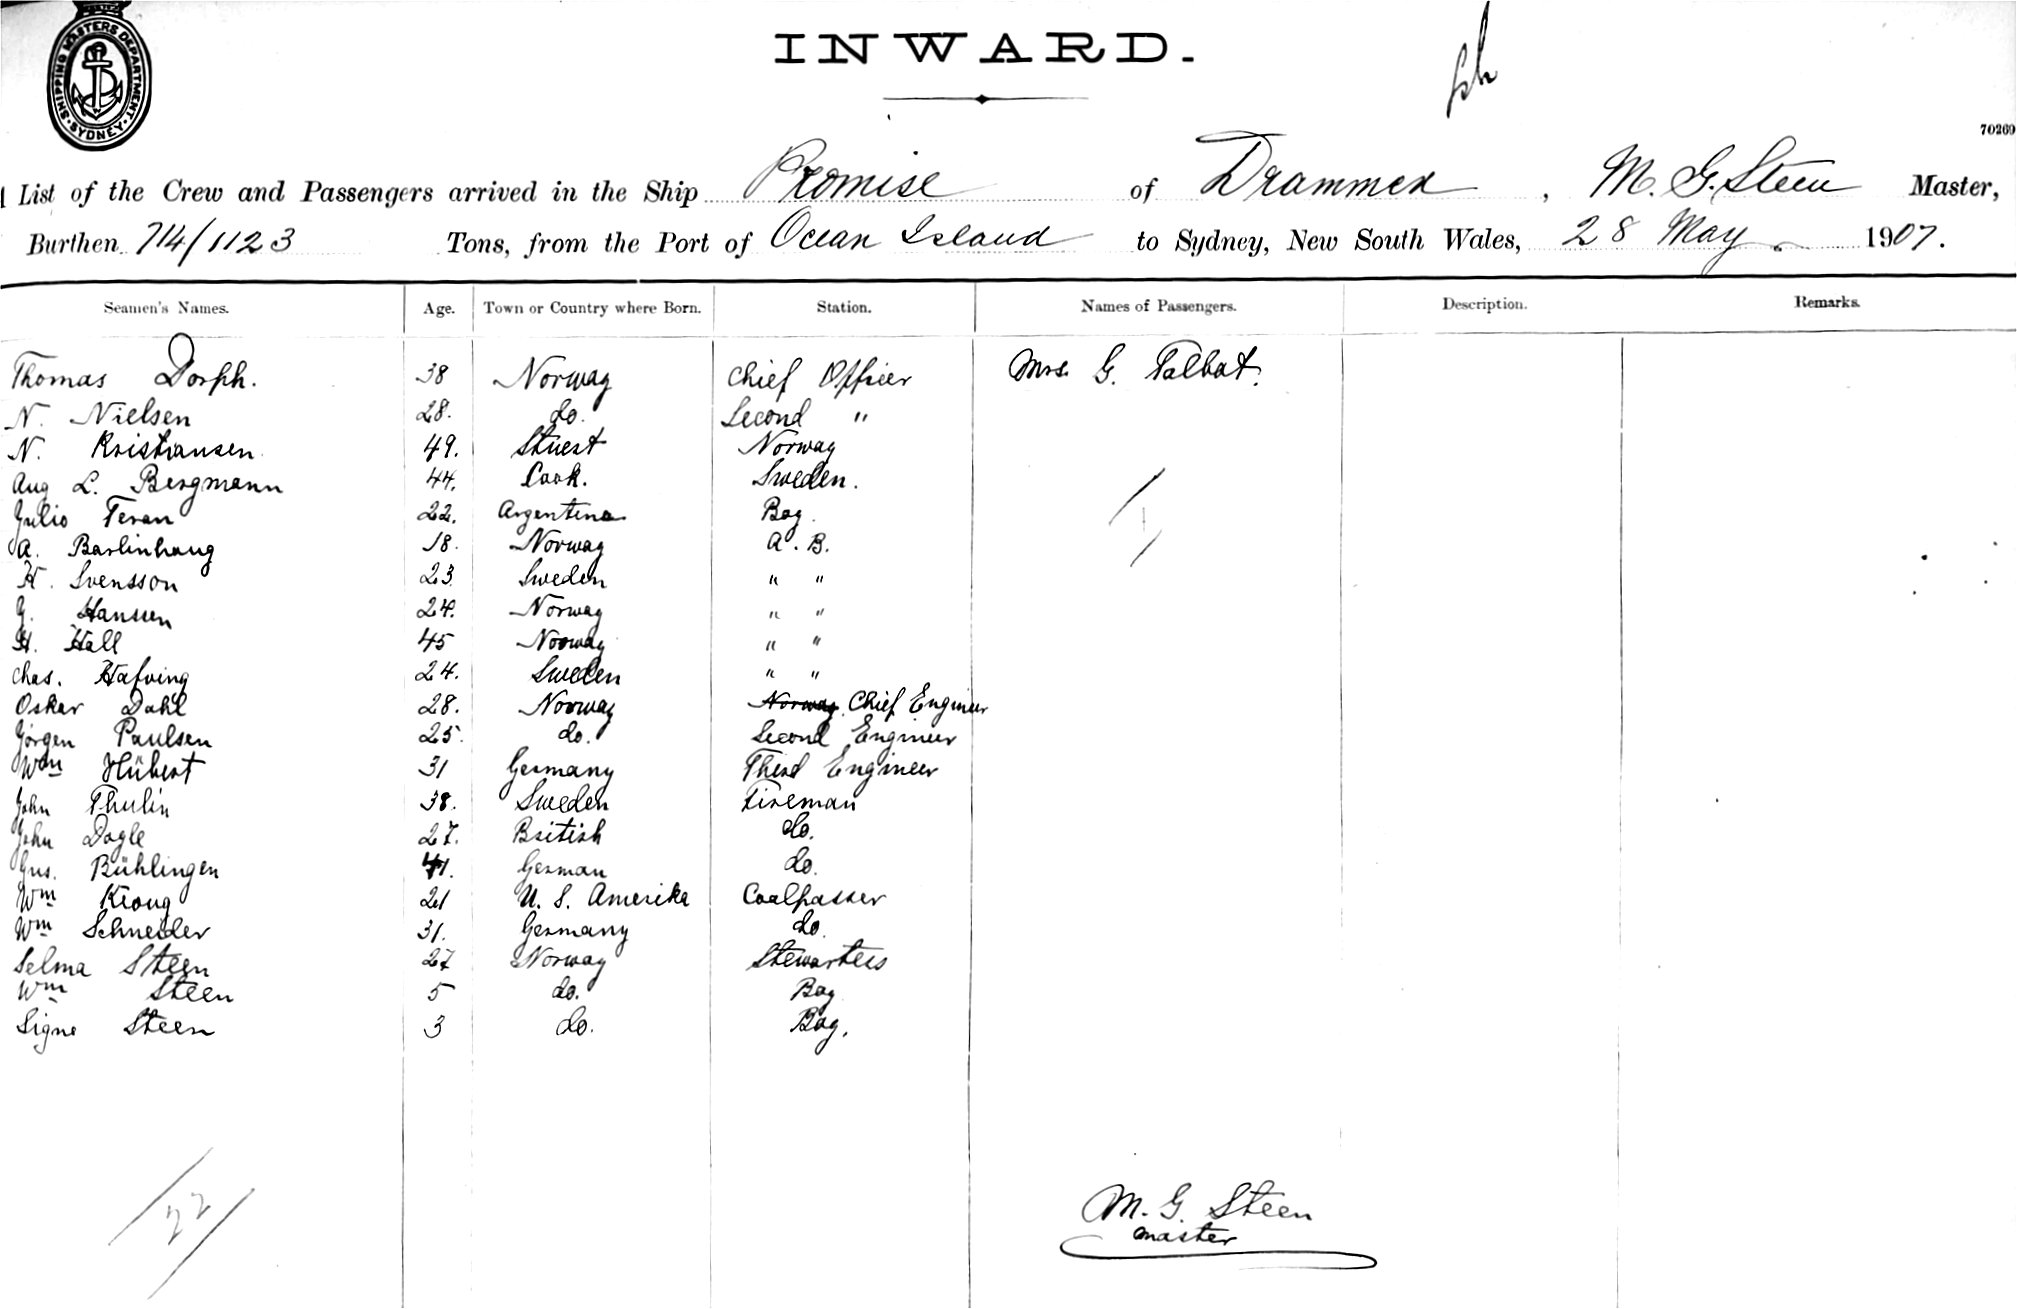 SHIPPING MASTERS DEPARTMENT. SYDNEY.
INWARD.
70269
List of the Crew and Passengers arrived in the Ship Promise of Drammen, M. G. Steen Master,
Burthen 714/1123 Tons, from the Port of Ocean Island to Sydney, New South Wales, 28 May. 1907.
Seamen's Names. Age. Town or Country where Born. Station. Names of Passengers. Description. Remarks.
Thomas Dorph. 38 Norway Chief Officer Mrs. G. Talbot.
N. Nielsen 28. do. Second "
N. Kristiansen 49. Stuert Norway
Aug L. Bergmann 44. Cook. Sweden.
Julio Teran 22. Argentina Boy.
A. Barlinhaug 18. Norway A. B.
K. Svensson 23 Sweden " "
J. Hanssen 24. Norway " "
H. Hall 45 Norway " "
Chas. Hafving 24. Sweden " "
Oskar Dahl 28. Norway Norway. Chief Engineer
Jörgen Paulsen 25. do. Second Engineer
Wm Hübert 31 Germany Third Engineer
John Thulin 38. Sweden Fireman
John Dogle 27. British do.
Gus. Bühlingen 41. German do.
Wm Kroug 21 U. S. Amerika Coalpasser
Wm Schneider 31. Germany do.
Selma Steen 27 Norway Stewartess
Wm Steen 5 do. Boy
Signe Steen 3 do. Boy.
1
22
M. G. Steen
master